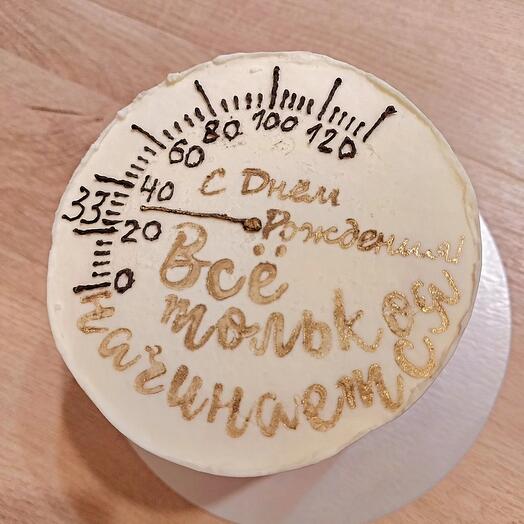 0
20
33
40
60
80
100
120
С Днем
Рождения!
Всё
только
начинается